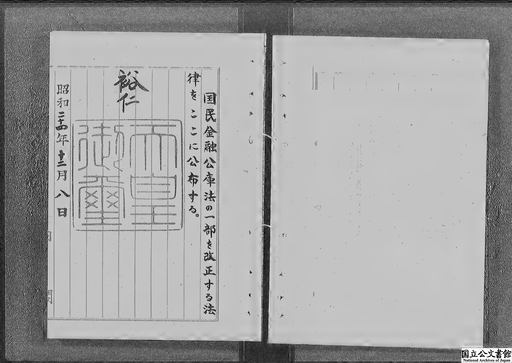 国民金融公庫法の一部を改正する法
律をここに公布する。
裕仁
天皇
御璽
昭和二十四年十二月八日
国立公文書館
National Archives of Japan